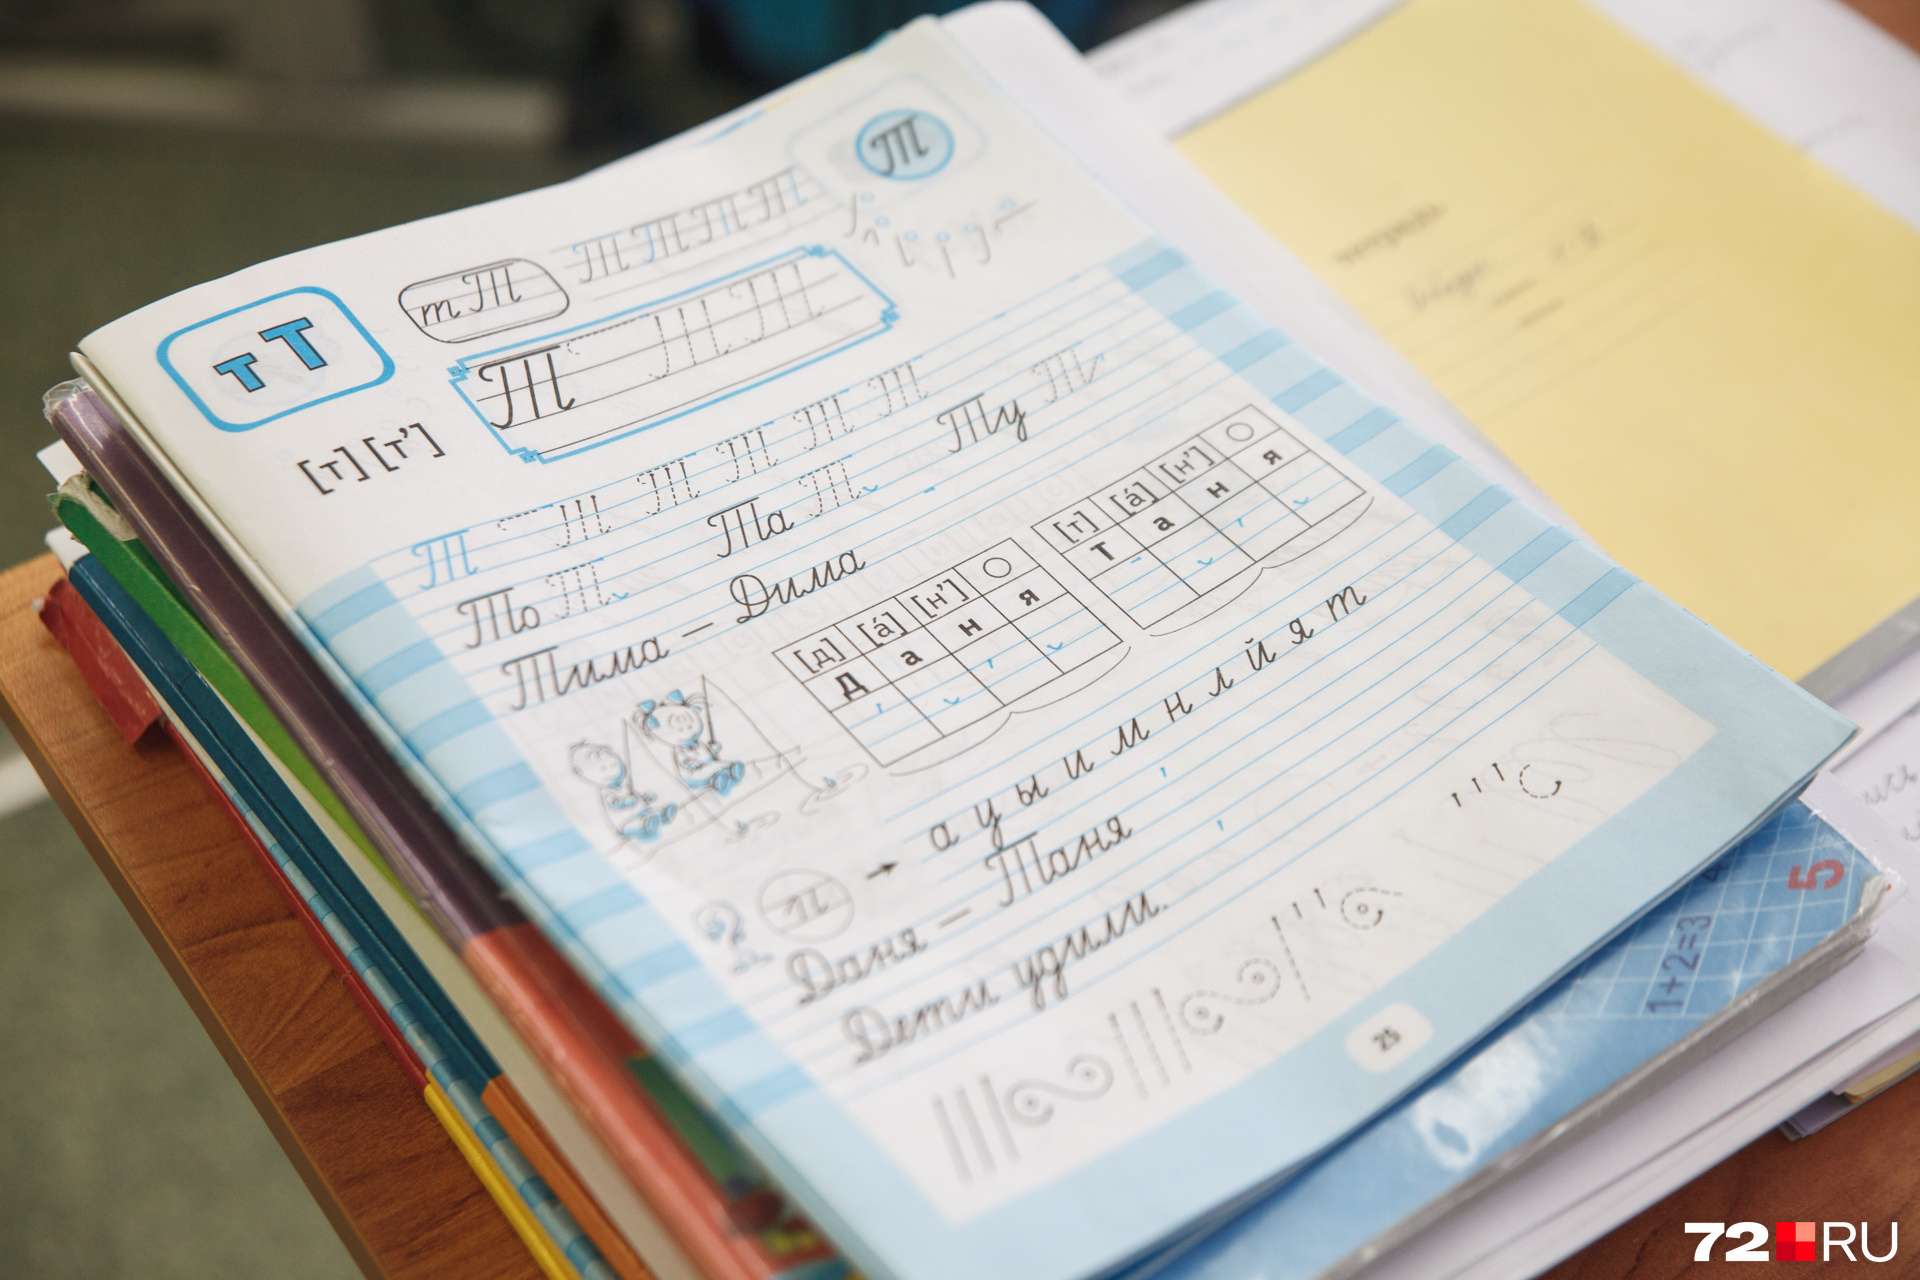 Т
т Т
т Т
Т Т Т Т
Т Т Т Т
[т] [т’]
Т Т Т Т Т Т
То Т Та Т Ту Т
Тима – Дима
[д] [á] [н’]
Д а н я
[т] [á] [н’]
Т а н я
→ а у ы и м н л й я т
Даня – Таня
Дети удили.
25
тетрадь
1+2=3 4 5
72 RU